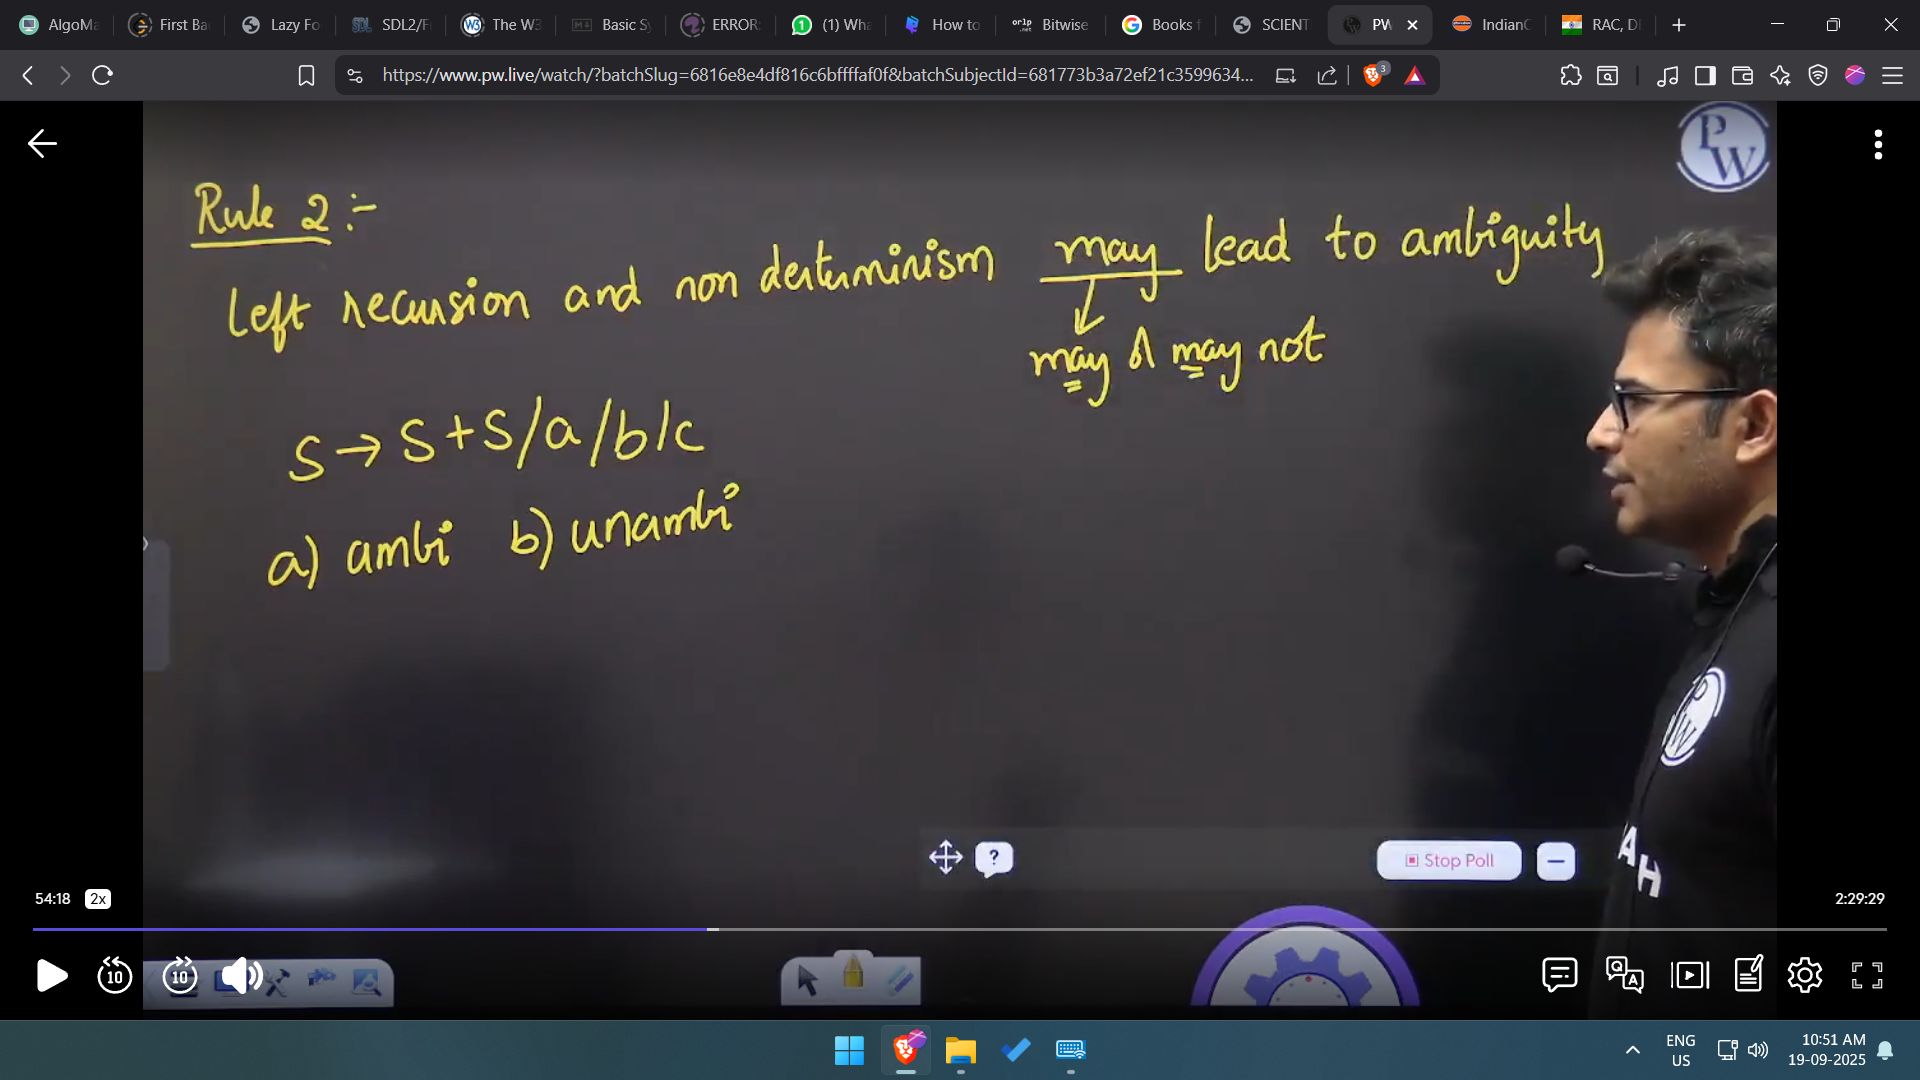 AlgoMa
First Ba
Lazy Fo
SDL2/F
The W3
Basic Sy
ERROR:
(1) Wha
How to
Bitwise
Books f
SCIENT
PW
IndianO
RAC, D
https://www.pw.live/watch/?batchSlug=6816e8e4df816c6bffffaf0f&batchSubjectId=681773b3a72ef21c3599634...
3
PW
Rule 2 :-
Left recursion and non desterminism may lead to ambiguity
may & may not
S → S + S / a / b / c
a) ambi b) unambi
PW
AH
?
Stop Poll
54:18 2x
2:29:29
10
10
ENG
US
10:51 AM
19-09-2025